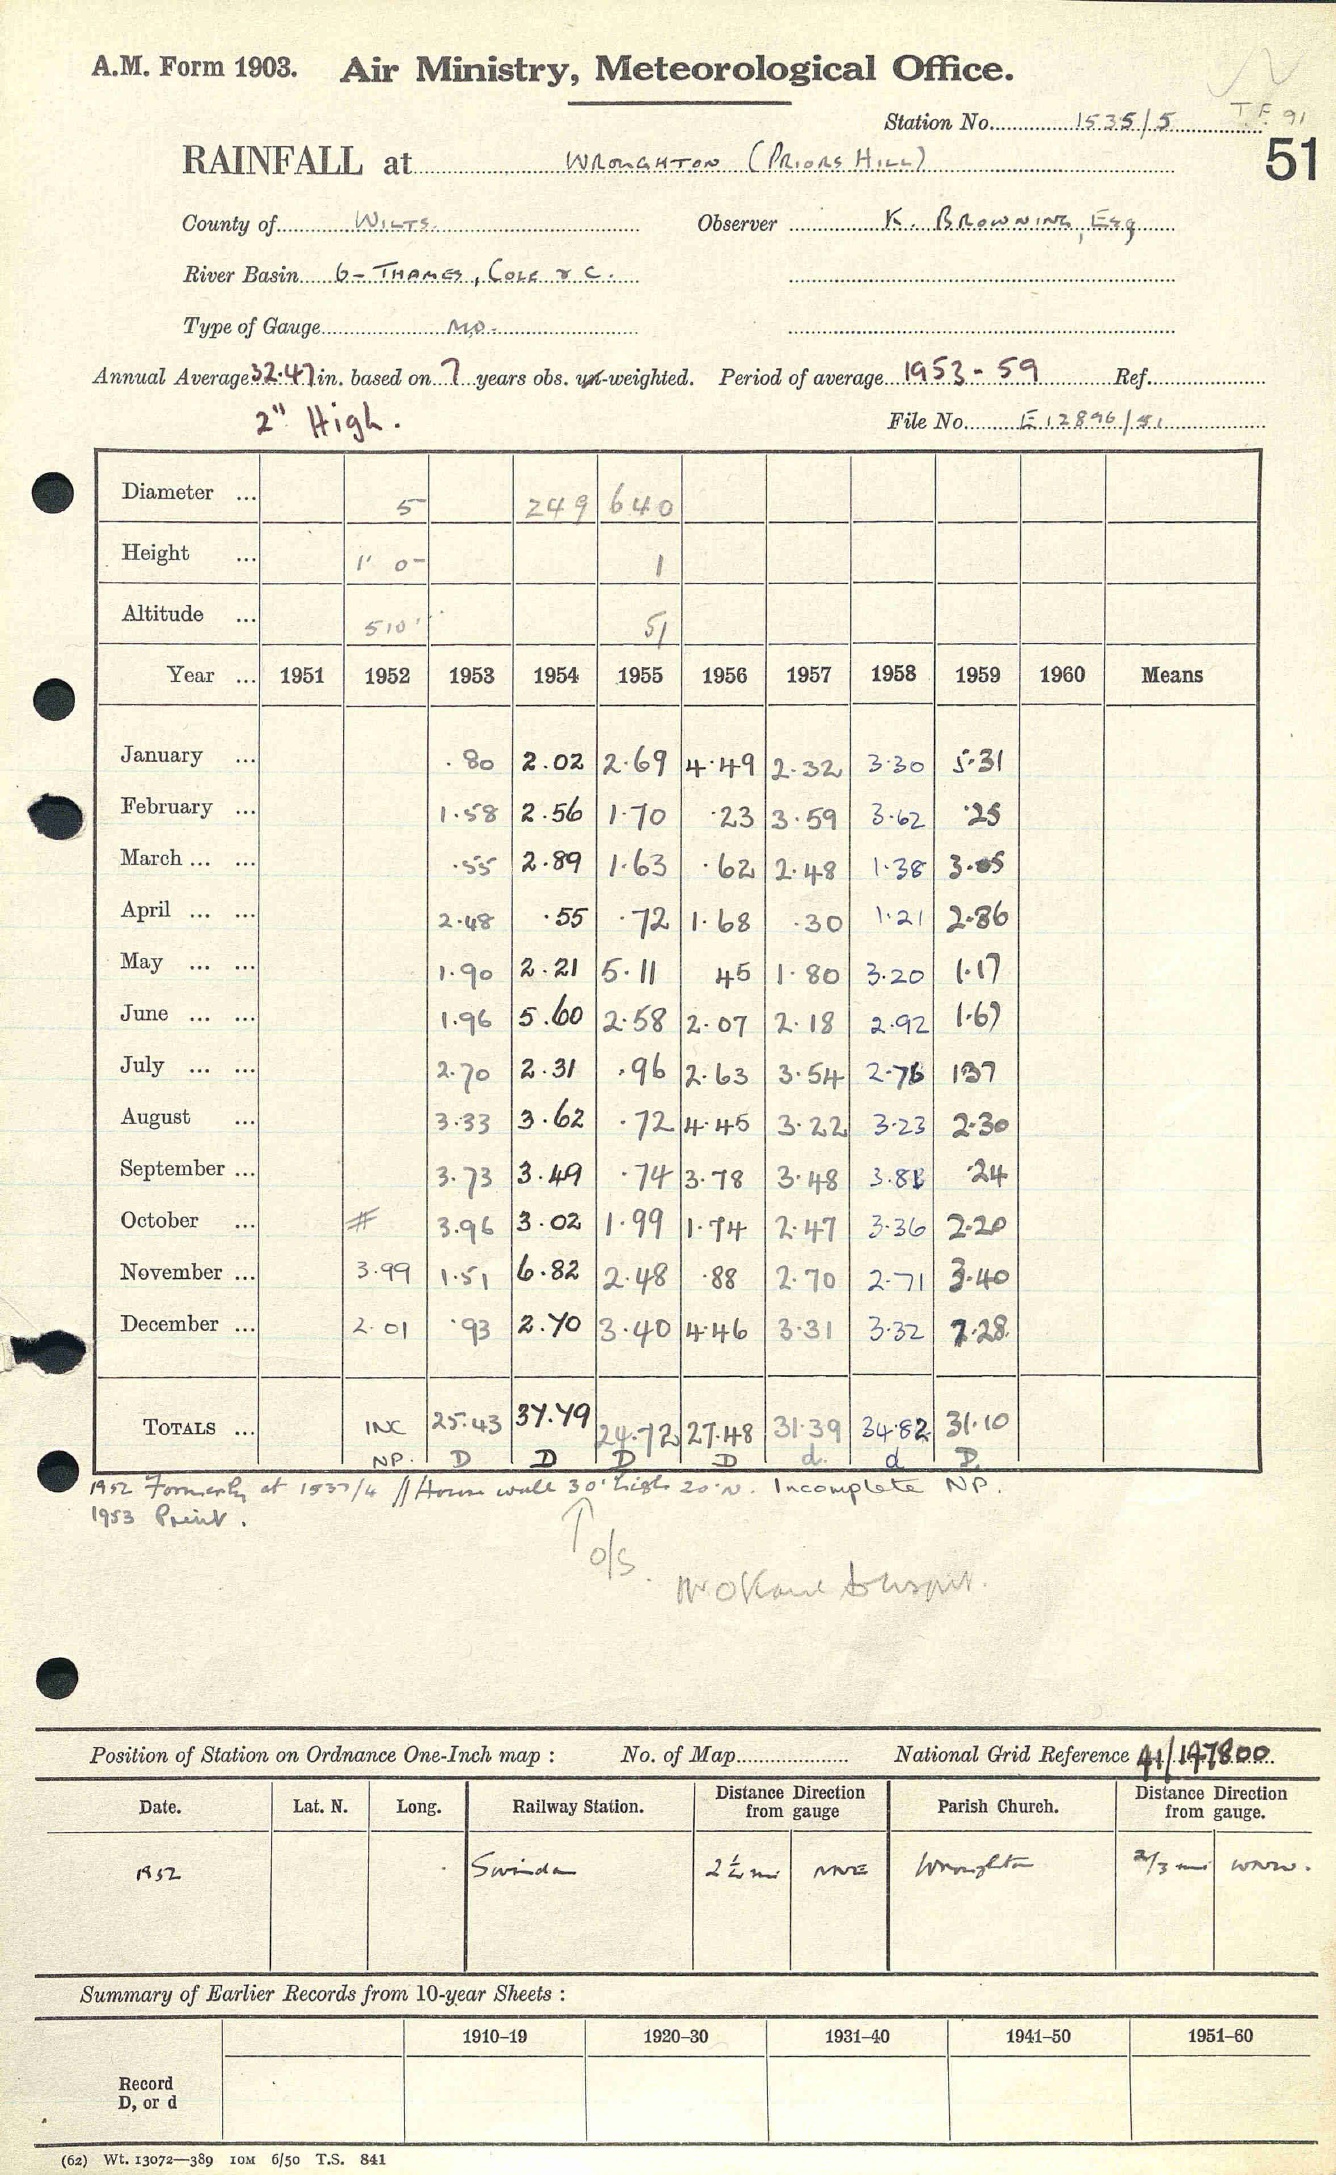 A.M. Form 1903. Air Ministry, Meteorological Office.
T.F. 91
Station No. 1535/5
51
RAINFALL at WROUGHTON (PRIORS HILL)
County of WILTS. Observer K. BROWNING, Esq
River Basin 6- THAMES, COLE & C.
Type of Gauge MO.
Annual Average 32.47 in. based on 7 years obs. un-weighted. Period of average 1953-59 Ref.
2" High. File No. E12896/51
Diameter ... 5 249 640
Height ... 1' 0" 1
Altitude ... 510' 51
Year ... 1951 1952 1953 1954 1955 1956 1957 1958 1959 1960 Means
January ... .80 2.02 2.69 4.49 2.32 3.30 5.31
February ... 1.58 2.56 1.70 .23 3.59 3.62 .25
March ... ... .55 2.89 1.63 .62 2.48 1.38 3.05
April ... ... 2.48 .55 .72 1.68 .30 1.21 2.86
May ... ... 1.90 2.21 5.11 45 1.80 3.20 1.17
June ... ... 1.96 5.60 2.58 2.07 2.18 2.92 1.67
July ... ... 2.70 2.31 .96 2.63 3.54 2.76 137
August ... 3.33 3.62 .72 4.45 3.22 3.23 2.30
September ... 3.73 3.49 .74 3.78 3.48 3.81 .24
October ... # 3.96 3.02 1.99 1.74 2.47 3.36 2.20
November ... 3.99 1.51 6.82 2.48 .88 2.70 2.71 3.40
December ... 2.01 .93 2.70 3.40 4.46 3.31 3.32 7.28
TOTALS ... INC 25.43 37.79 24.72 27.48 31.39 34.82 31.10
NP. D D D D d. d D.
1952 Formerly at 1537/4 // House wall 30' high 20' N. Incomplete NP.
1953 Print.
↑ o/s.
Position of Station on Ordnance One-Inch map : No. of Map National Grid Reference 41/147800
Date. Lat. N. Long. Railway Station. Distance Direction from gauge Parish Church. Distance Direction from gauge.
1952 Swindon 2½ mi NNE Wroughton 2/3 mi WNW.
Summary of Earlier Records from 10-year Sheets :
1910–19 1920–30 1931–40 1941–50 1951–60
Record
D, or d
(62) Wt. 13072—389 10M 6/50 T.S. 841